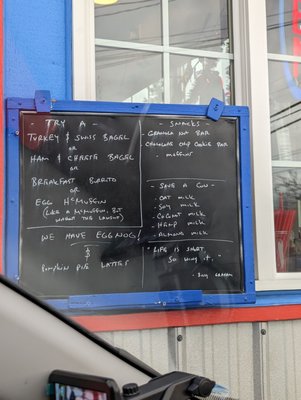 - TRY A -
TURKEY & SWISS BAGEL
OR
HAM & CHEESE BAGEL
OR
BREAKFAST BURRITO
OR
EGG McMUFFIN
(LIKE A McMUFFIN, BUT
WORTH THE LAUGH)
WE HAVE EGGNOG!
&
PUMPKIN PIE LATTES
- SNACKS -
- GRANOLA NUT BAR
- CHOCOLATE CHIP COOKIE BAR
- MUFFINS
- SAVE A COW -
- OAT MILK
- SOY MILK
- COCONUT MILK
- HEMP MILK
- ALMOND MILK
"LIFE IS SHORT,
SO WING IT."